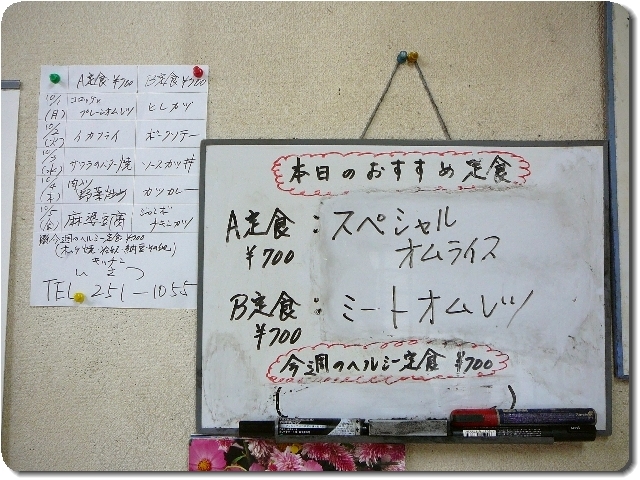 A定食 ¥700 B定食 ¥700
10/1 (月) コロッケ プレーンオムレツ ヒレカツ
10/2 (火) イカフライ ポークソテー
10/3 (水) サワラのバター焼 ソースカツ丼
10/4 (木) 肉入り 野菜炒め カツカレー
10/5 (金) 麻婆豆腐 チキンカツ
今週のヘルシー定食 ¥700
キッチン
TEL 251-1055
本日のおすすめ定食
A定食 : スペシャル
¥700 オムライス
B定食 : ミートオムレツ
¥700
今週のヘルシー定食 ¥700